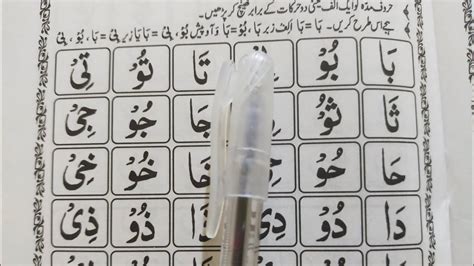 حروف مدہ کو ایک الف یعنی دو حرکات کے برابر کھینچ کر پڑھیں۔
ہجے اس طرح کریں۔ بَا = بَا الف زبر بَا، بُوْ = بَا وآؤ پیش بُوْ، بِیْ = بَا یا زیر بِیْ
بَا بُوْ تَا تُوْ تِیْ
ثَا ثُوْ جَا جُوْ جِیْ
حَا حُوْ حِیْ خَا خُوْ خِیْ
دَا دُوْ دِیْ ذَا ذُوْ ذِیْ